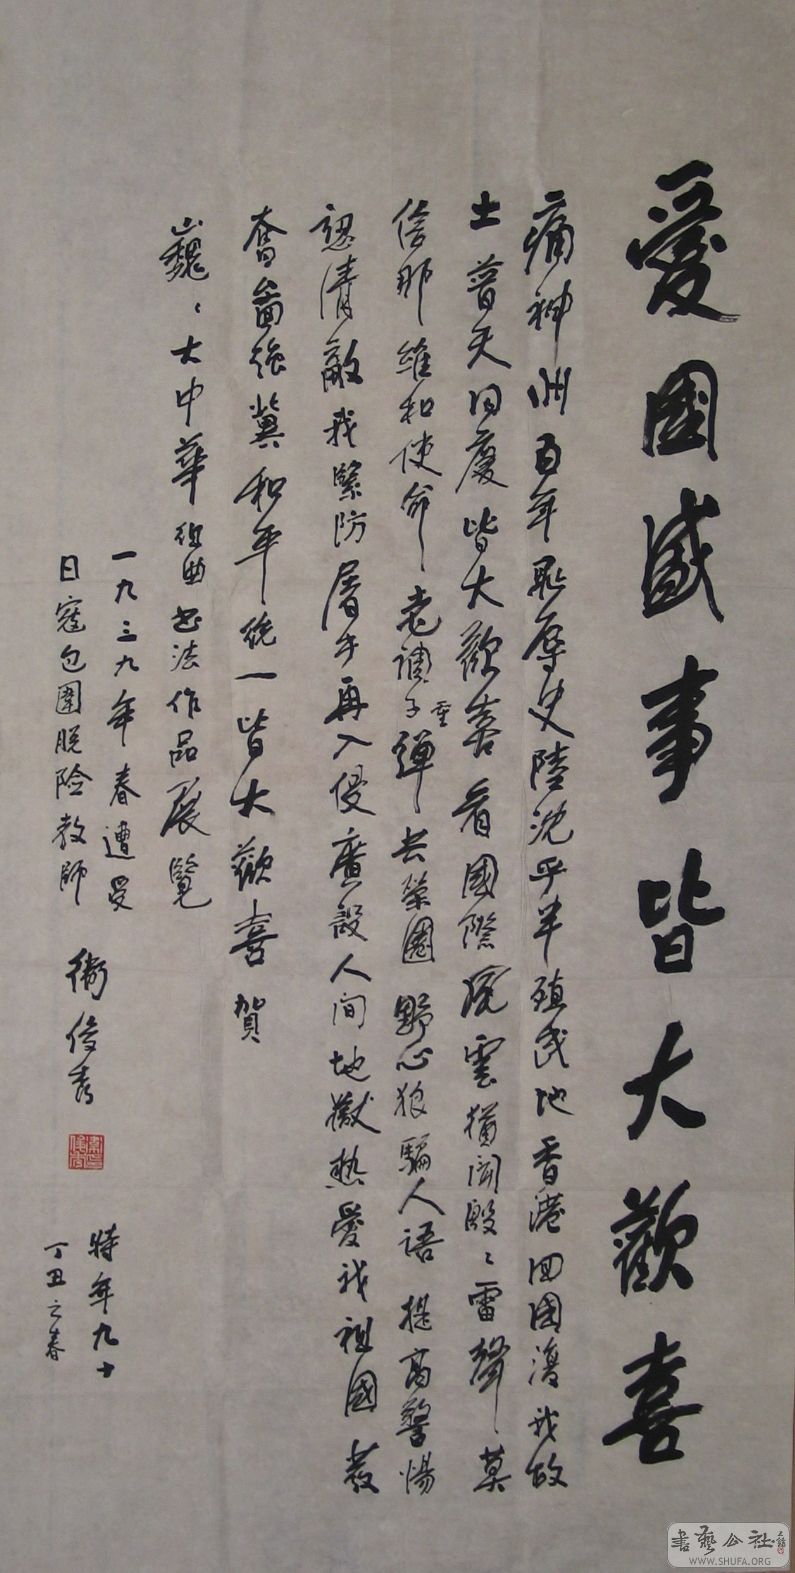 愛國盛事皆大歡喜
痛神州百年恥辱史陸沈乎半殖民地香港回國復我故
土普天同慶皆大歡喜看國際風雲猶聞殷〻雷聲莫
信那維和使命老調子重彈共榮圈野心狼騙人語提高警惕
認清敵我緊防屠手再入侵廣設人间地獄熱愛我祖國發
奮啚強冀和平統一皆大歡喜賀
巍〻大中華組曲书法作品展覽
一九三九年春遭受
日寇包圍脱險教師
衛俊秀
時年九十
丁丑之春
書藝公社
WWW.SHUFA.ORG